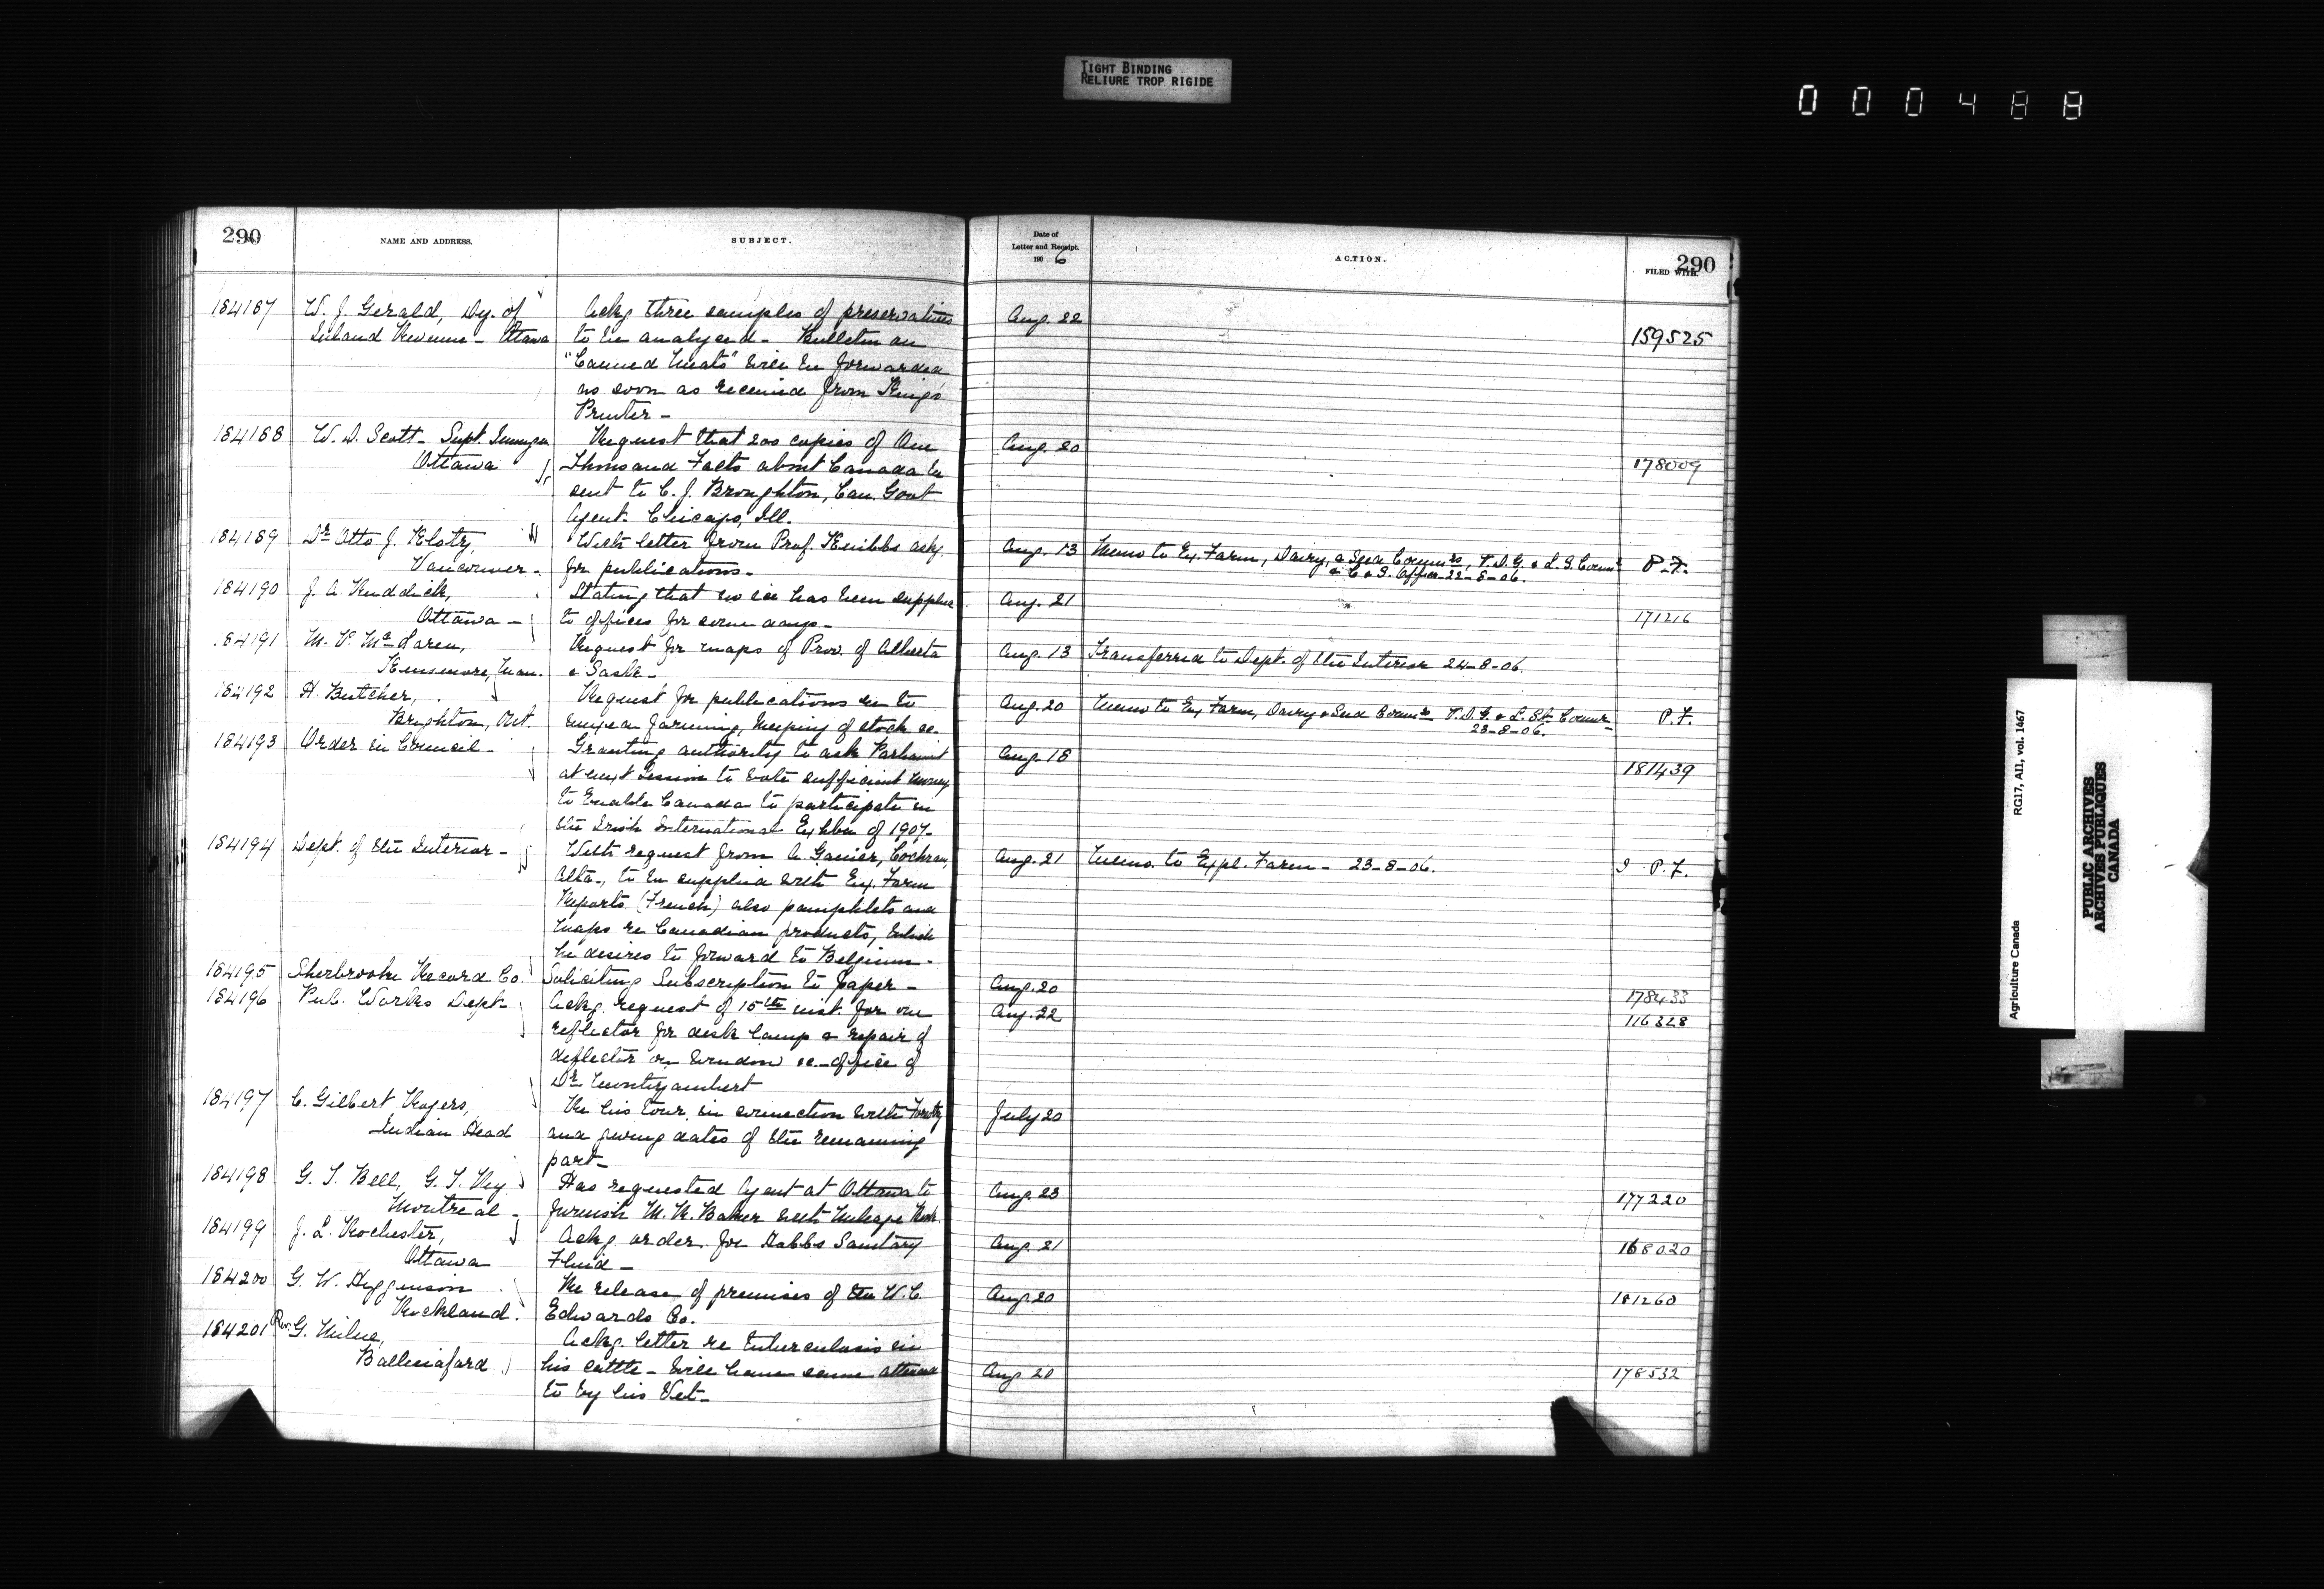 TIGHT BINDING
RELIURE TROP RIGIDE
000488
290
NAME AND ADDRESS.
SUBJECT.
Date of
Letter and Receipt.
1906
ACTION.
FILED WITH.
290
184187 W. J. Gerald, Dy. of Ackg three samples of preservatives Aug. 22
Inland Revenue - Ottawa to be analysed - Bulletin on 159525
"Canned Meats" will be forwarded
as soon as received from King's
Printer -
184188 W. D. Scott - Supt. Immign Request that 200 copies of One Aug. 20
Ottawa Thousand Facts about Canada be 178009
sent to C. J. Broughton, Can. Govt
Agent. Chicago, Ill.
184189 Dr Otto J. Klotz, With letter from Prof. Knibbs askg Aug. 13 Memo to Ex. Farm, Dairy, & Seed Commrs, V.D.G. & L.S. Commr P.F.
Vancouver - for publications - & C & S. Office 22-8-06.
184190 J. A. Ruddick, Stating that no ice has been supplied Aug. 21
Ottawa - to offices for some days - 171216
184191 M. P. McLaren, Request for maps of Prov. of Alberta Aug. 13 Transferred to Dept. of the Interior 24-8-06.
Kenmore, Man. & Sask -
184192 H. Butcher, Request for publications re to Aug. 20 Memo to Ex Farm, Dairy & Seed Commrs V.D.G. & L. Stk Commr - P.F.
Brighton, Ont. farming, keeping of stock &c - 23-8-06.
184193 Order in Council - Granting authority to ask Parliament Aug. 18
at next Session to vote sufficient money 181439
to enable Canada to participate in
the Irish International Exhbn of 1907 -
184194 Dept. of the Interior - With request from A. Garnier, Cochrane, Aug. 21 Memo. to Expl. Farm - 23-8-06. P.F.
Alta -, to be supplied with Ex. Farm
Reports (French) also pamphlets and
maps re Canadian products, which
he desires to forward to Belgium -
184195 Sherbrooke Record Co. Soliciting Subscription to paper - Aug. 20 178433
184196 Pub. Works Dept - Ackg. request of 15th inst. for one Aug. 22 116328
reflector for desk lamp & repair of
deflector on window &c - office of
Dr Montizambert
184197 C. Gilbert Rogers, Re his tour in connection with Forestry July 20
Indian Head and giving dates of the remaining
part -
184198 G. T. Bell, G. T. Ry Has requested Agent at Ottawa to Aug. 23 177220
Montreal - furnish M. R. Baker with Mileage Book.
184199 J. L. Rochester, Ackg. order for Hobbs Sanitary Aug. 21 168020
Ottawa Fluid -
184200 G. W. Higginson Re release of premises of the W. C. Aug. 20 181260
Rockland. Edwards Co.
184201 Rev. G. Milne, Ackg. letter re tuberculosis in
Ballinafard his cattle - will have same attended Aug. 20 178532
to by his Vet -
Agriculture Canada
RG17, AII, vol. 1467
PUBLIC ARCHIVES
ARCHIVES PUBLIQUES
CANADA